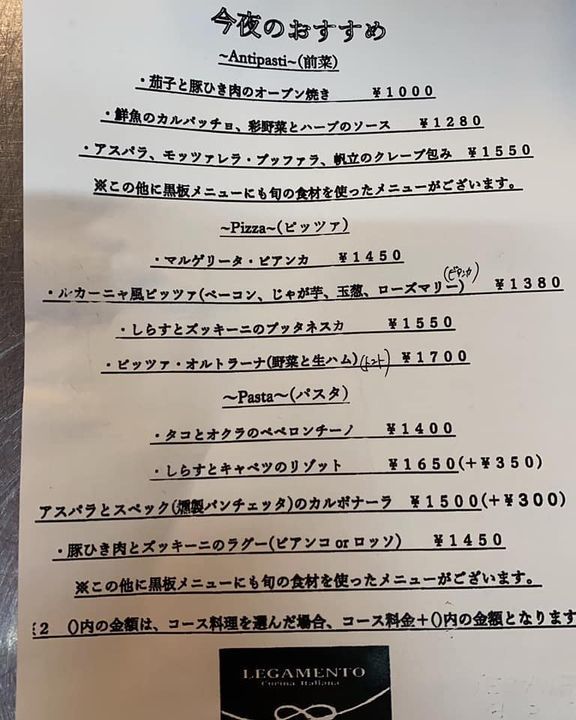 今夜のおすすめ
~Antipasti~(前菜)
・茄子と豚ひき肉のオーブン焼き ￥1000
・鮮魚のカルパッチョ、彩野菜とハーブのソース ￥1280
・アスパラ、モッツァレラ・ブッファラ、帆立のクレープ包み ￥1550
※この他に黒板メニューにも旬の食材を使ったメニューがございます。
~Pizza~(ピッツァ)
・マルゲリータ・ビアンカ ￥1450
・ルカーニャ風ピッツァ(ベーコン、じゃが芋、玉葱、ローズマリー)(ビアンカ) ￥1380
・しらすとズッキーニのプッタネスカ ￥1550
・ピッツァ・オルトラーナ(野菜と生ハム)(トマト) ￥1700
～Pasta～(パスタ)
・タコとオクラのペペロンチーノ ￥1400
・しらすとキャベツのリゾット ￥1650(+￥350)
アスパラとスペック(燻製パンチェッタ)のカルボナーラ ￥1500(+￥300)
・豚ひき肉とズッキーニのラグー(ビアンコ or ロッソ) ￥1450
※この他に黒板メニューにも旬の食材を使ったメニューがございます。
2 ()内の金額は、コース料理を選んだ場合、コース料金+()内の金額となります
LEGAMENTO
Cucina Italiana